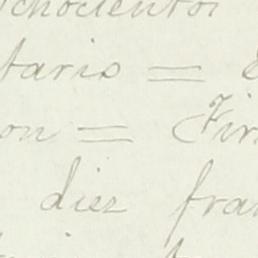 chocientos
tario =
on = Fir
diez fra